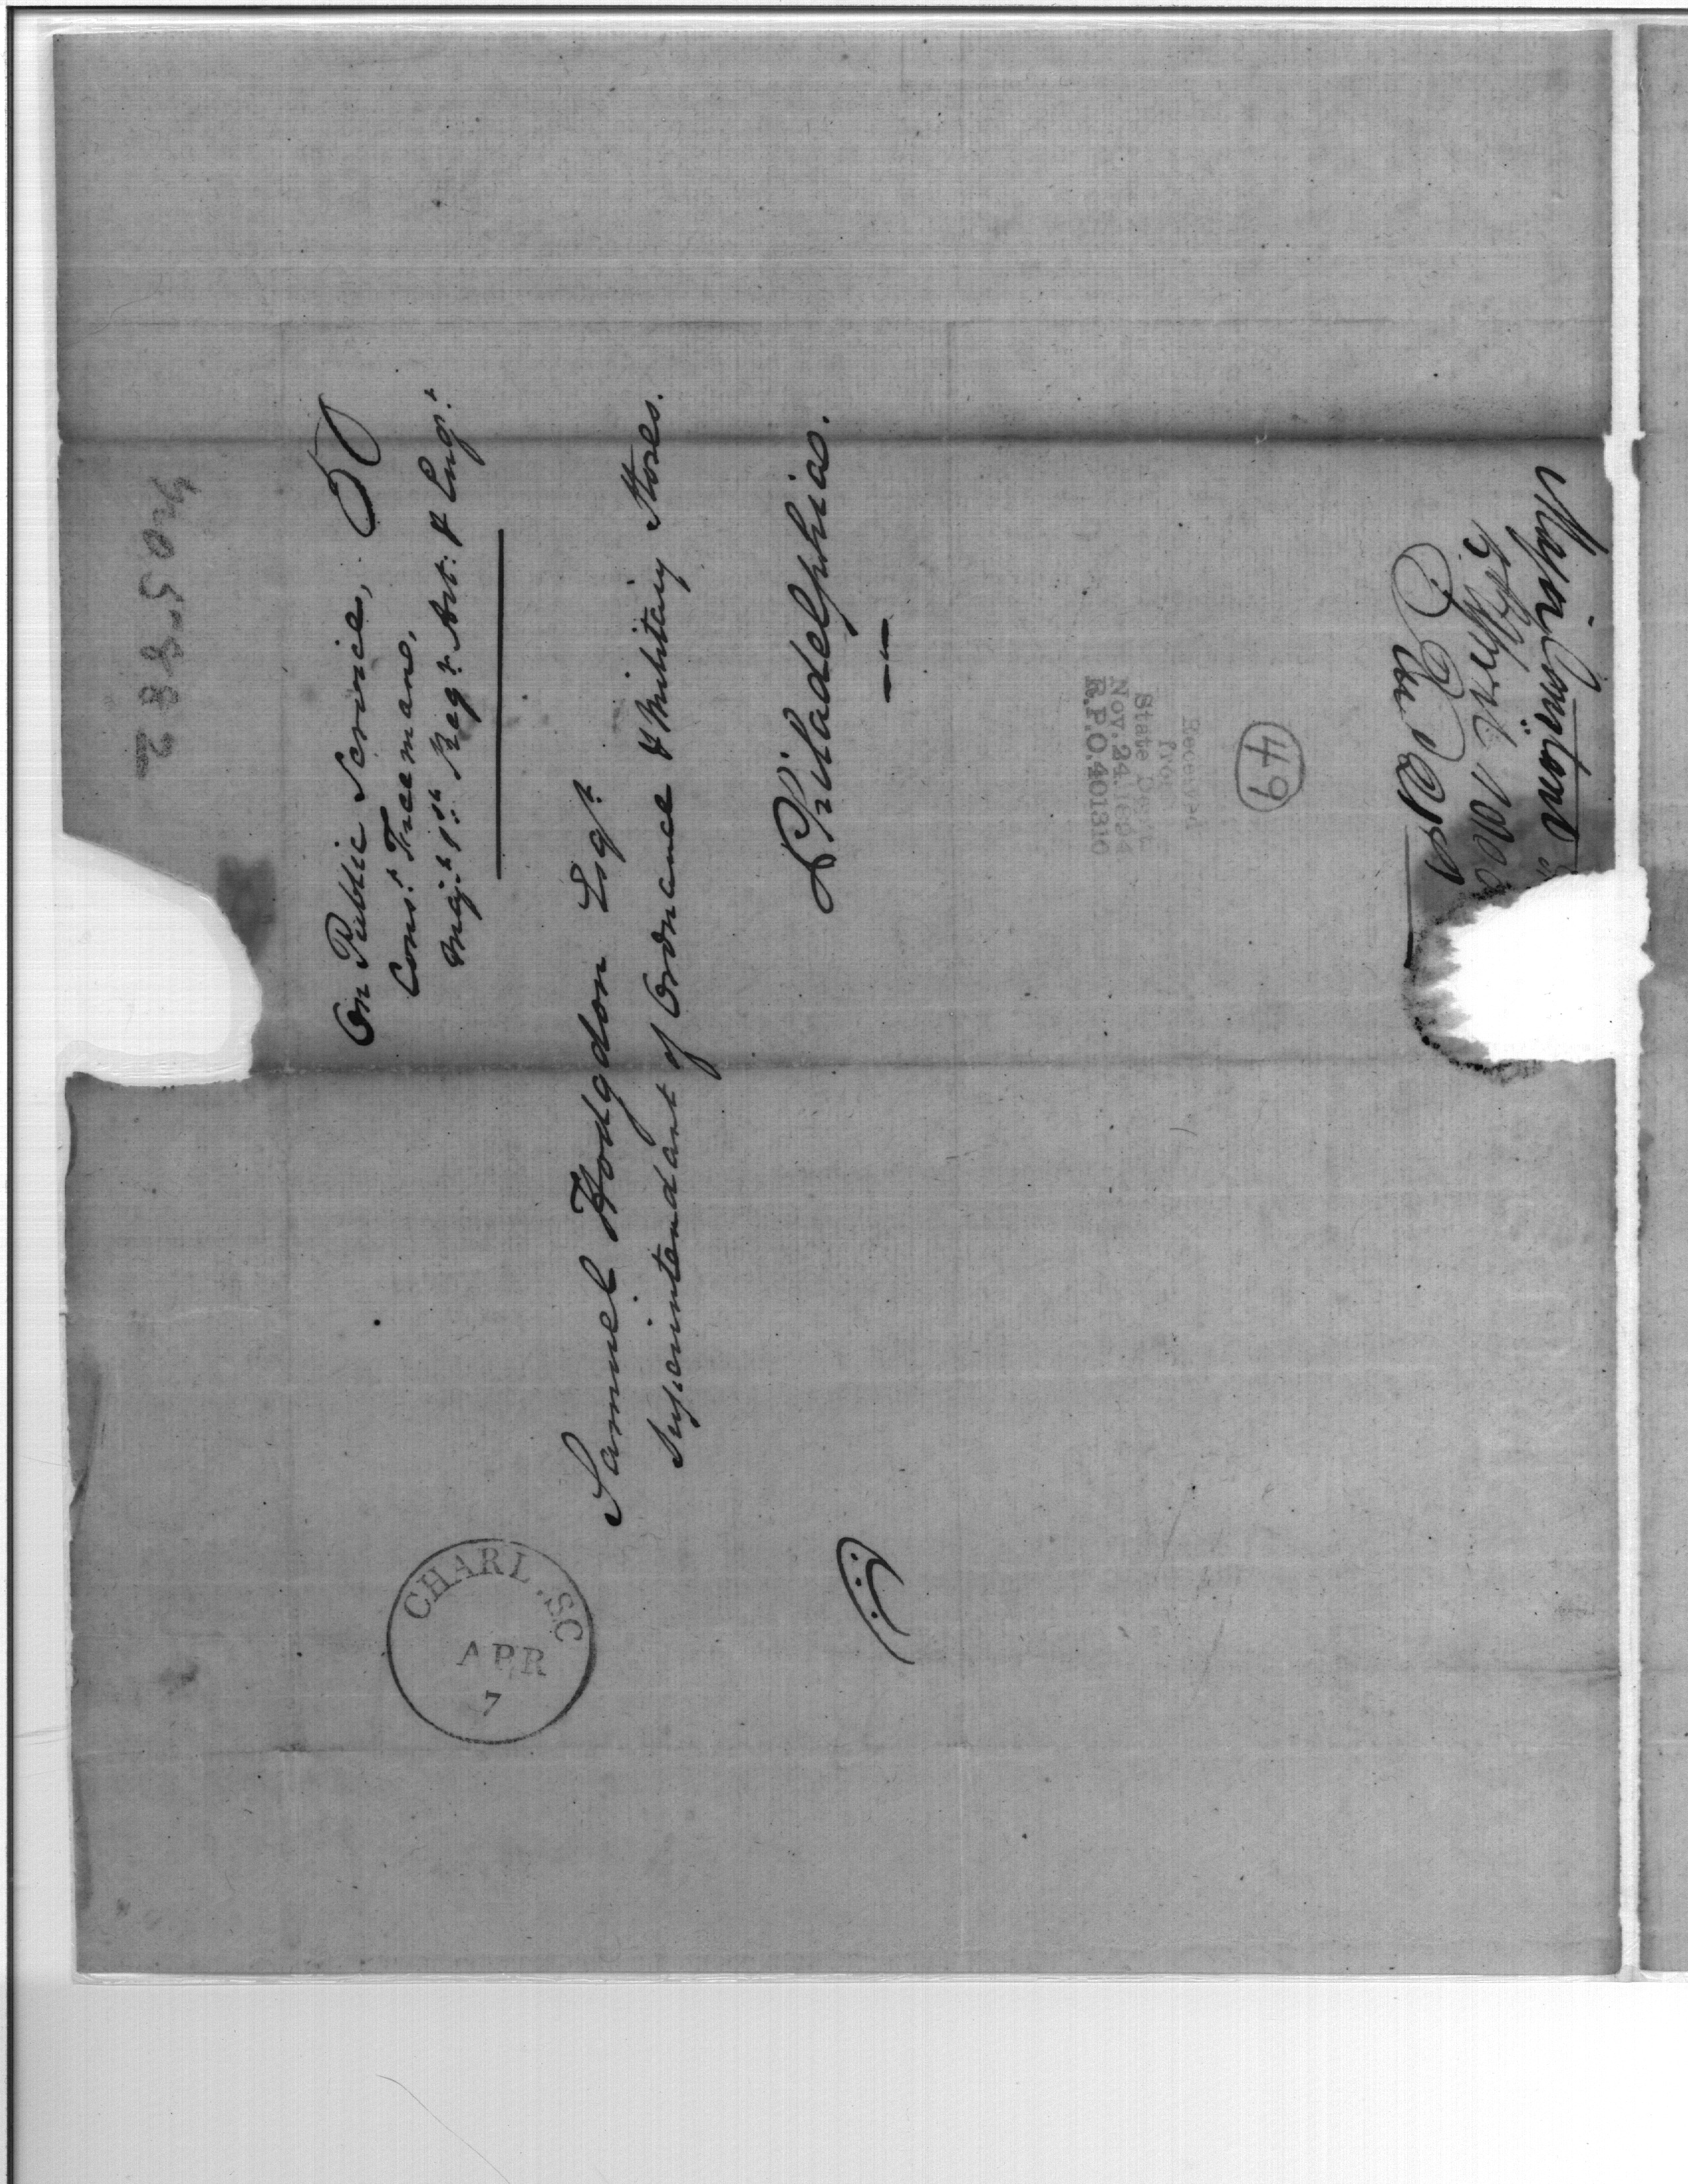 On Public Service,
Const. Freeman,
Majr. 1st. Regt. Art: & Engr.
Samuel Hodgdon Esqr.
Superintendant of Ordnance & Military Stores.
Philadelphia.
CHARL.SC
APR
7
Received
from
State Dept.
Nov. 24. 1894
R.P.O. 401310
49
Major Constant
5th April 1800